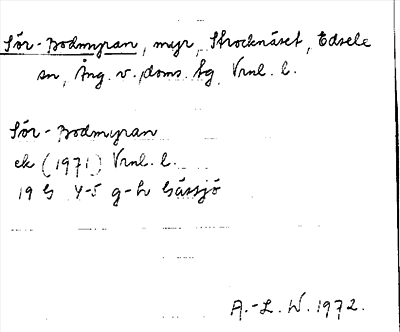 Sör-Bodmyran, myr, Strocknäset, Edsele
sn, Ång. v. doms. tg Vrnl. l.
Sör-Bodmyran
ek (1971) Vrnl. l.
19 G 4-5 g-h Gässjö
A.-L. W. 1972.